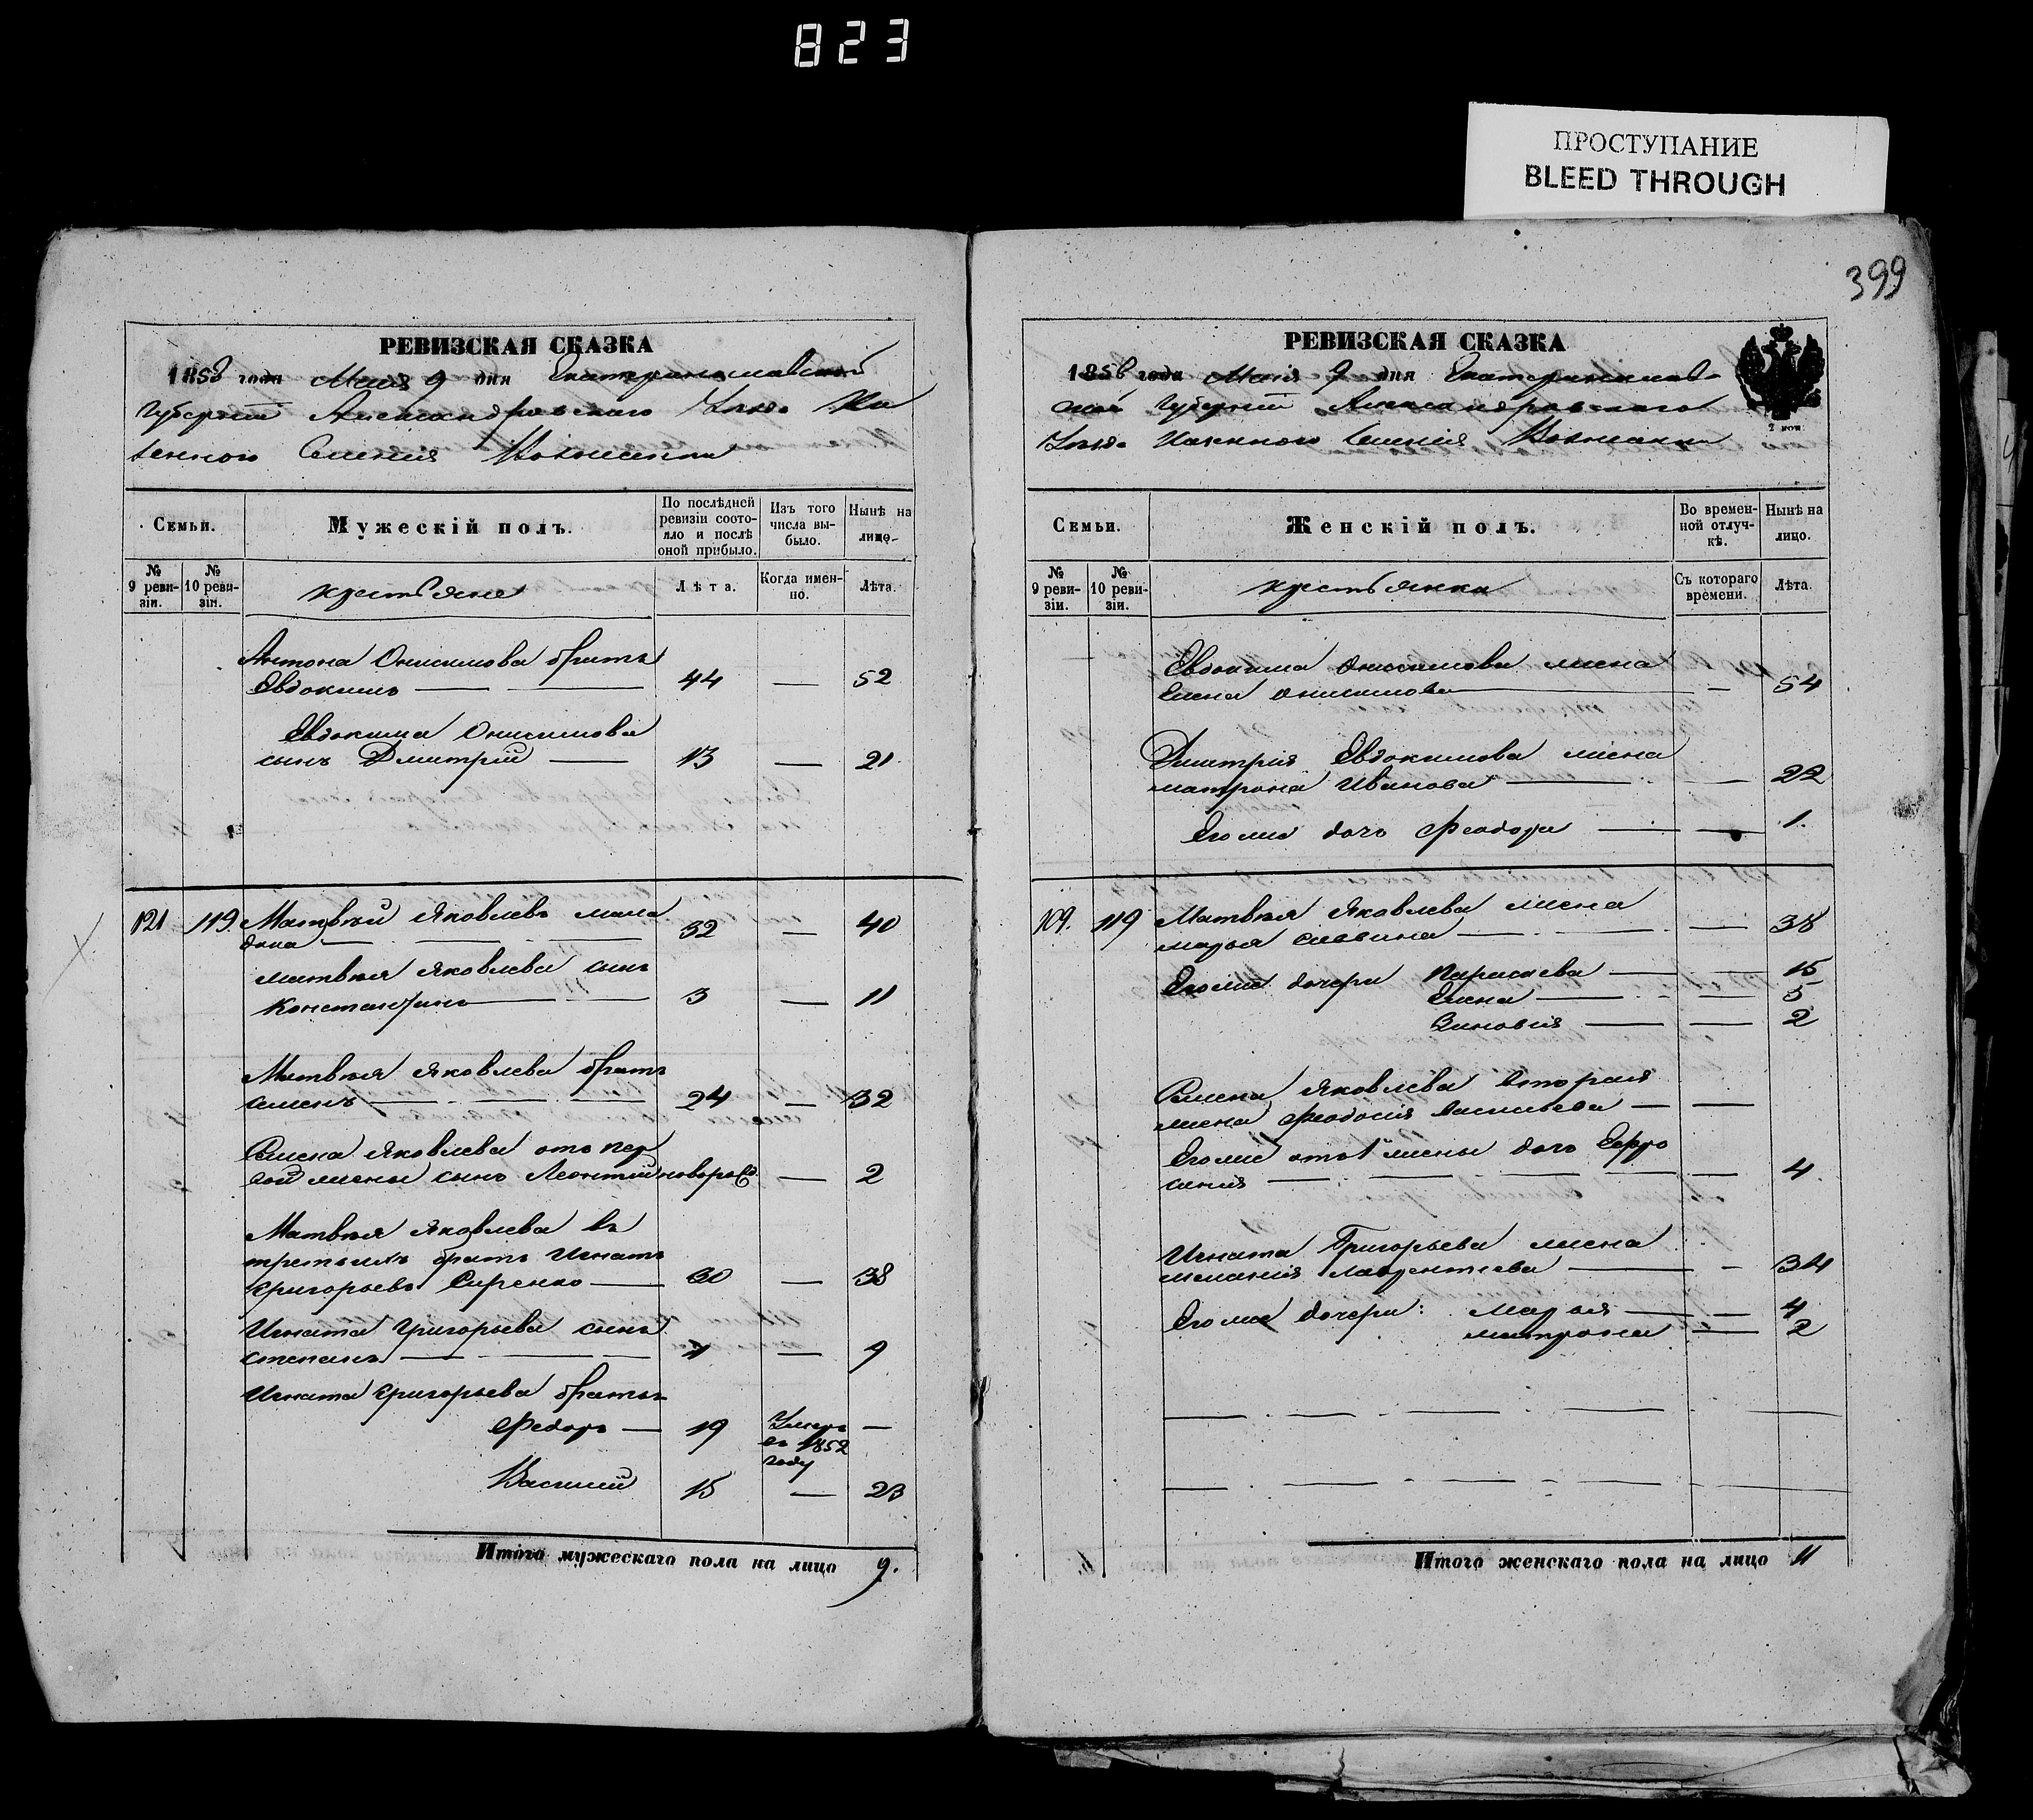 823
ПРОСТУПАНИЕ
BLEED THROUGH
399
РЕВИЗСКАЯ СКАЗКА
1858 года Маія 9 дня Екатеринославской
Губерніи Александровскаго Уѣзда Ка
зеннаго Селенія
Семьи.
Мужескій полъ.
По послѣдней ревизіи состояло и послѣ оной прибыло.
Изъ того числа выбыло.
Нынѣ на лицо.
№ 9 ревизіи.
№ 10 ревизіи.
крестьяне
Лѣта.
Когда именно.
Лѣта.
Антона Онисимова братъ
Евдокимъ — 44 — 52
Евдокима Онисимова
сынъ Дмитрій — 13 — 21
121 119 Матвѣй Яковлевъ
32 — 40
Матвѣя Яковлева сынъ
Константинъ — 3 — 11
Матвѣя Яковлева братъ
Семенъ — 24 — 32
Семена Яковлева отъ пер
вой жены сынъ Леонтій новорожд — 2
Матвѣя Яковлева въ
третьихъ братъ Игнатъ
Григорьевъ Сиренко — 30 — 38
Игната Григорьева сынъ
Степанъ — 1 — 9
Игната Григорьева братья
Федоръ — 19 Умеръ въ 1852 году —
Василій 15 — 23
Итого мужескаго пола на лицо 9.
РЕВИЗСКАЯ СКАЗКА
1858 года Маія 9 дня Екатеринослав-
ской Губерніи Александровскаго
Уѣзда Казеннаго Селенія
2 коп
Семьи.
Женскій полъ.
Во временной отлучкѣ.
Нынѣ на лицо.
№ 9 ревизіи.
№ 10 ревизіи.
крестьянка
Съ котораго времени.
Лѣта.
Евдокима Онисимова жена
Елена Онисимова — 54
Дмитрія Евдокимова жена
Матрона Иванова — 22
Его же дочь Феодора — 1.
109. 119 Матвѣя Яковлева жена
Марья Саввина — 38
Его же дочери Параскева — 15
Елена — 5
Зиновія — 2
Семена Яковлева вторая
жена Феодосія Васильева —
Его же отъ 1й жены дочь Ефро
синія — 4
Игната Григорьева жена
Меланія Лаврентіева — 34
Его же дочери: Марья — 4
Матрона — 2
Итого женскаго пола на лицо 11